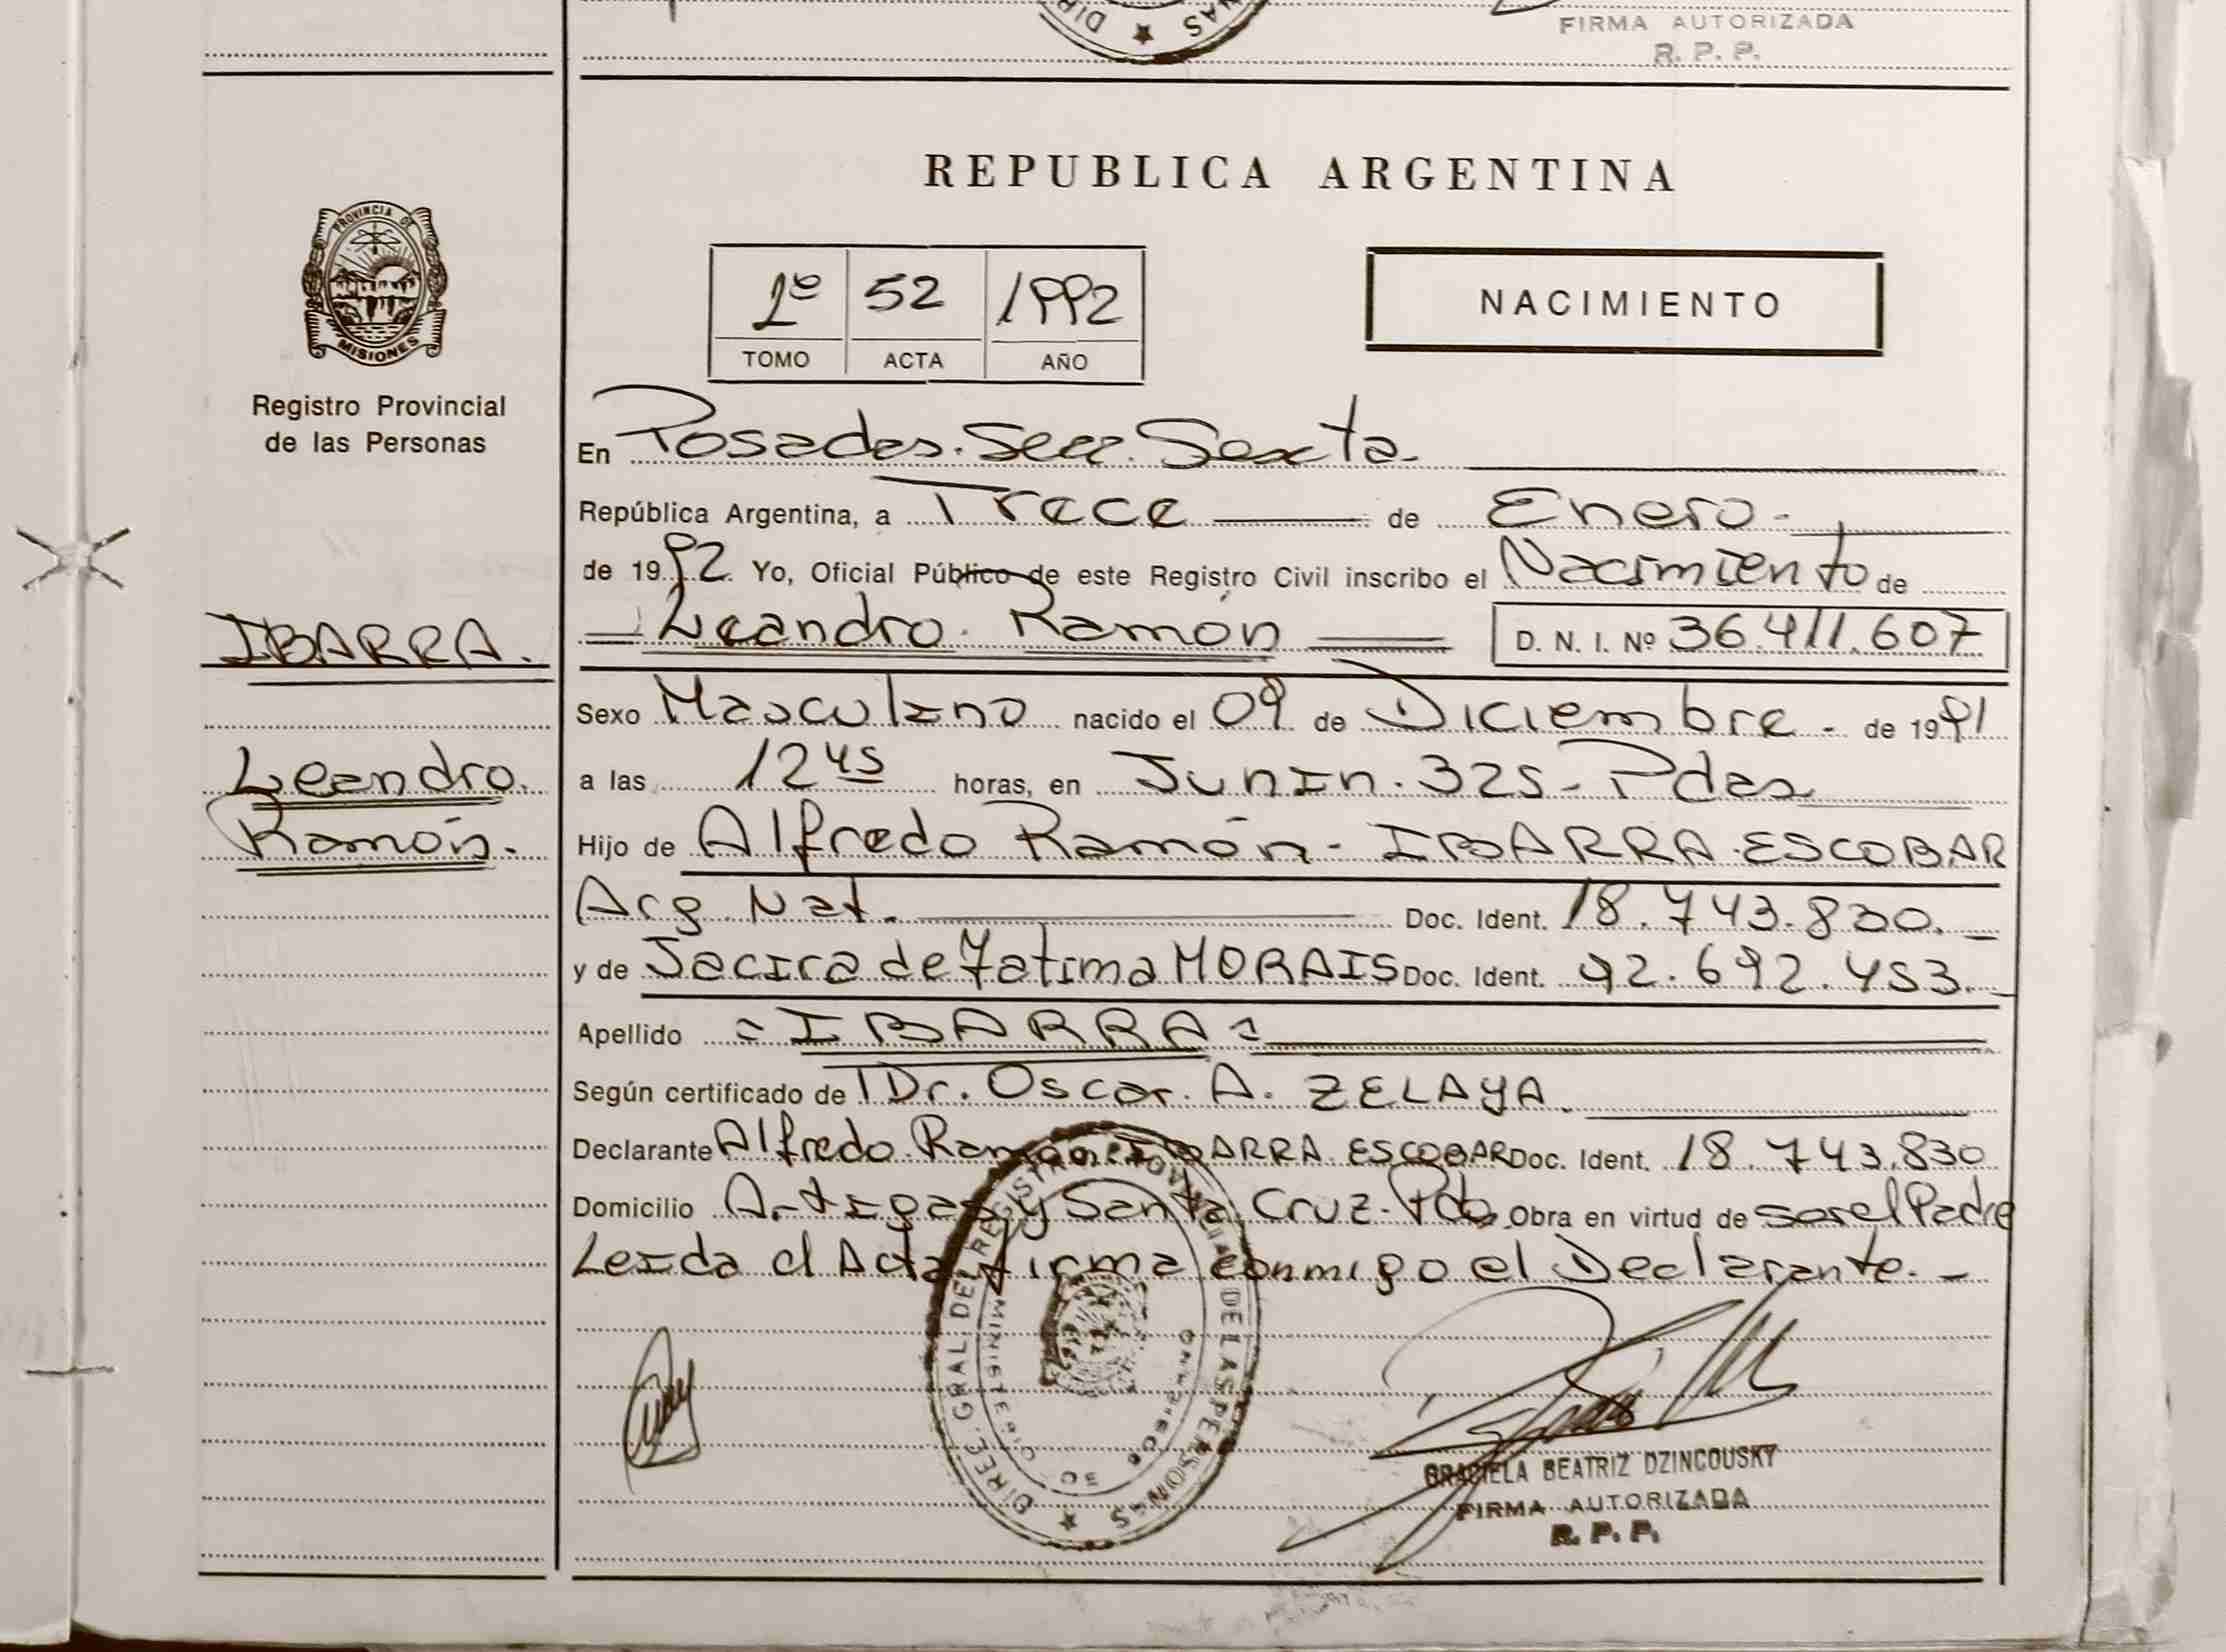 FIRMA AUTORIZADA
R. P. P.
REPUBLICA ARGENTINA
PROVINCIA DE
MISIONES
Registro Provincial
de las Personas
1º 52 1992
TOMO ACTA AÑO
NACIMIENTO
En Posadas. Secc. Sexta
República Argentina, a Trece de Enero.
de 1992. Yo, Oficial Público de este Registro Civil inscribo el Nacimiento de
IBARRA.
Leandro. Ramón D. N. I. Nº 36.411.607
Sexo Masculino nacido el 09 de Diciembre - de 1991
Leandro.
Ramón.
a las 12 45 horas, en Junin. 325 - Pdas
Hijo de Alfredo Ramón - IBARRA ESCOBAR
Arg. Nat. Doc. Ident. 18.743.830.
y de Jacira de Fatima MORAIS Doc. Ident. 92.692.453.
Apellido = IBARRA =
Según certificado de Dr. Oscar. A. ZELAYA.
Declarante Alfredo Ramón IBARRA ESCOBAR Doc. Ident. 18.743.830
Domicilio Artigas y Santa Cruz - Obra en virtud de ser el Padre
Leida el Acta firma conmigo el Declarante. -
DIREC. GRAL. DEL REGISTRO PROVINCIAL DE LAS PERSONAS
GRACIELA BEATRIZ DZINCOUSKY
FIRMA AUTORIZADA
R. P. P.